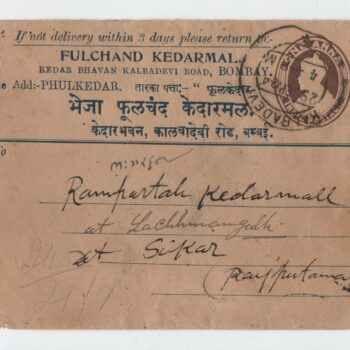 If not delivery within 3 days please return to:
FULCHAND KEDARMAL.
KEDAR BHAVAN KALBADEVI ROAD, BOMBAY.
Add:-PHULKEDAR. तारका पत्ता:-
भेजा फूलचंद केदारमल.
केदारभवन, कालबादेवी रोड, बम्बई.
To
Rampartab Kedarmall
at Lachhmangadh
at Sikar
(Rajputana)